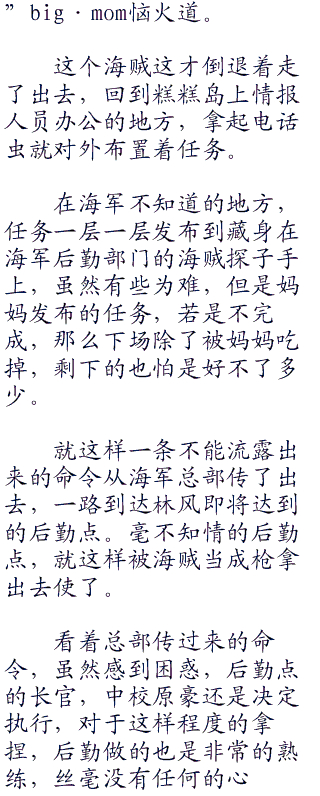 ”big·mom恼火道。
这个海贼这才倒退着走
了出去，回到糕糕岛上情报
人员办公的地方，拿起电话
虫就对外布置着任务。
在海军不知道的地方，
任务一层一层发布到藏身在
海军后勤部门的海贼探子手
上，虽然有些为难，但是妈
妈发布的任务，若是不完
成，那么下场除了被妈妈吃
掉，剩下的也怕是好不了多
少。
就这样一条不能流露出
来的命令从海军总部传了出
去，一路到达林风即将达到
的后勤点。毫不知情的后勤
点，就这样被海贼当成枪拿
出去使了。
看着总部传过来的命
令，虽然感到困惑，后勤点
的长官，中校原豪还是决定
执行，对于这样程度的拿
捏，后勤做的也是非常的熟
练，丝毫没有任何的心